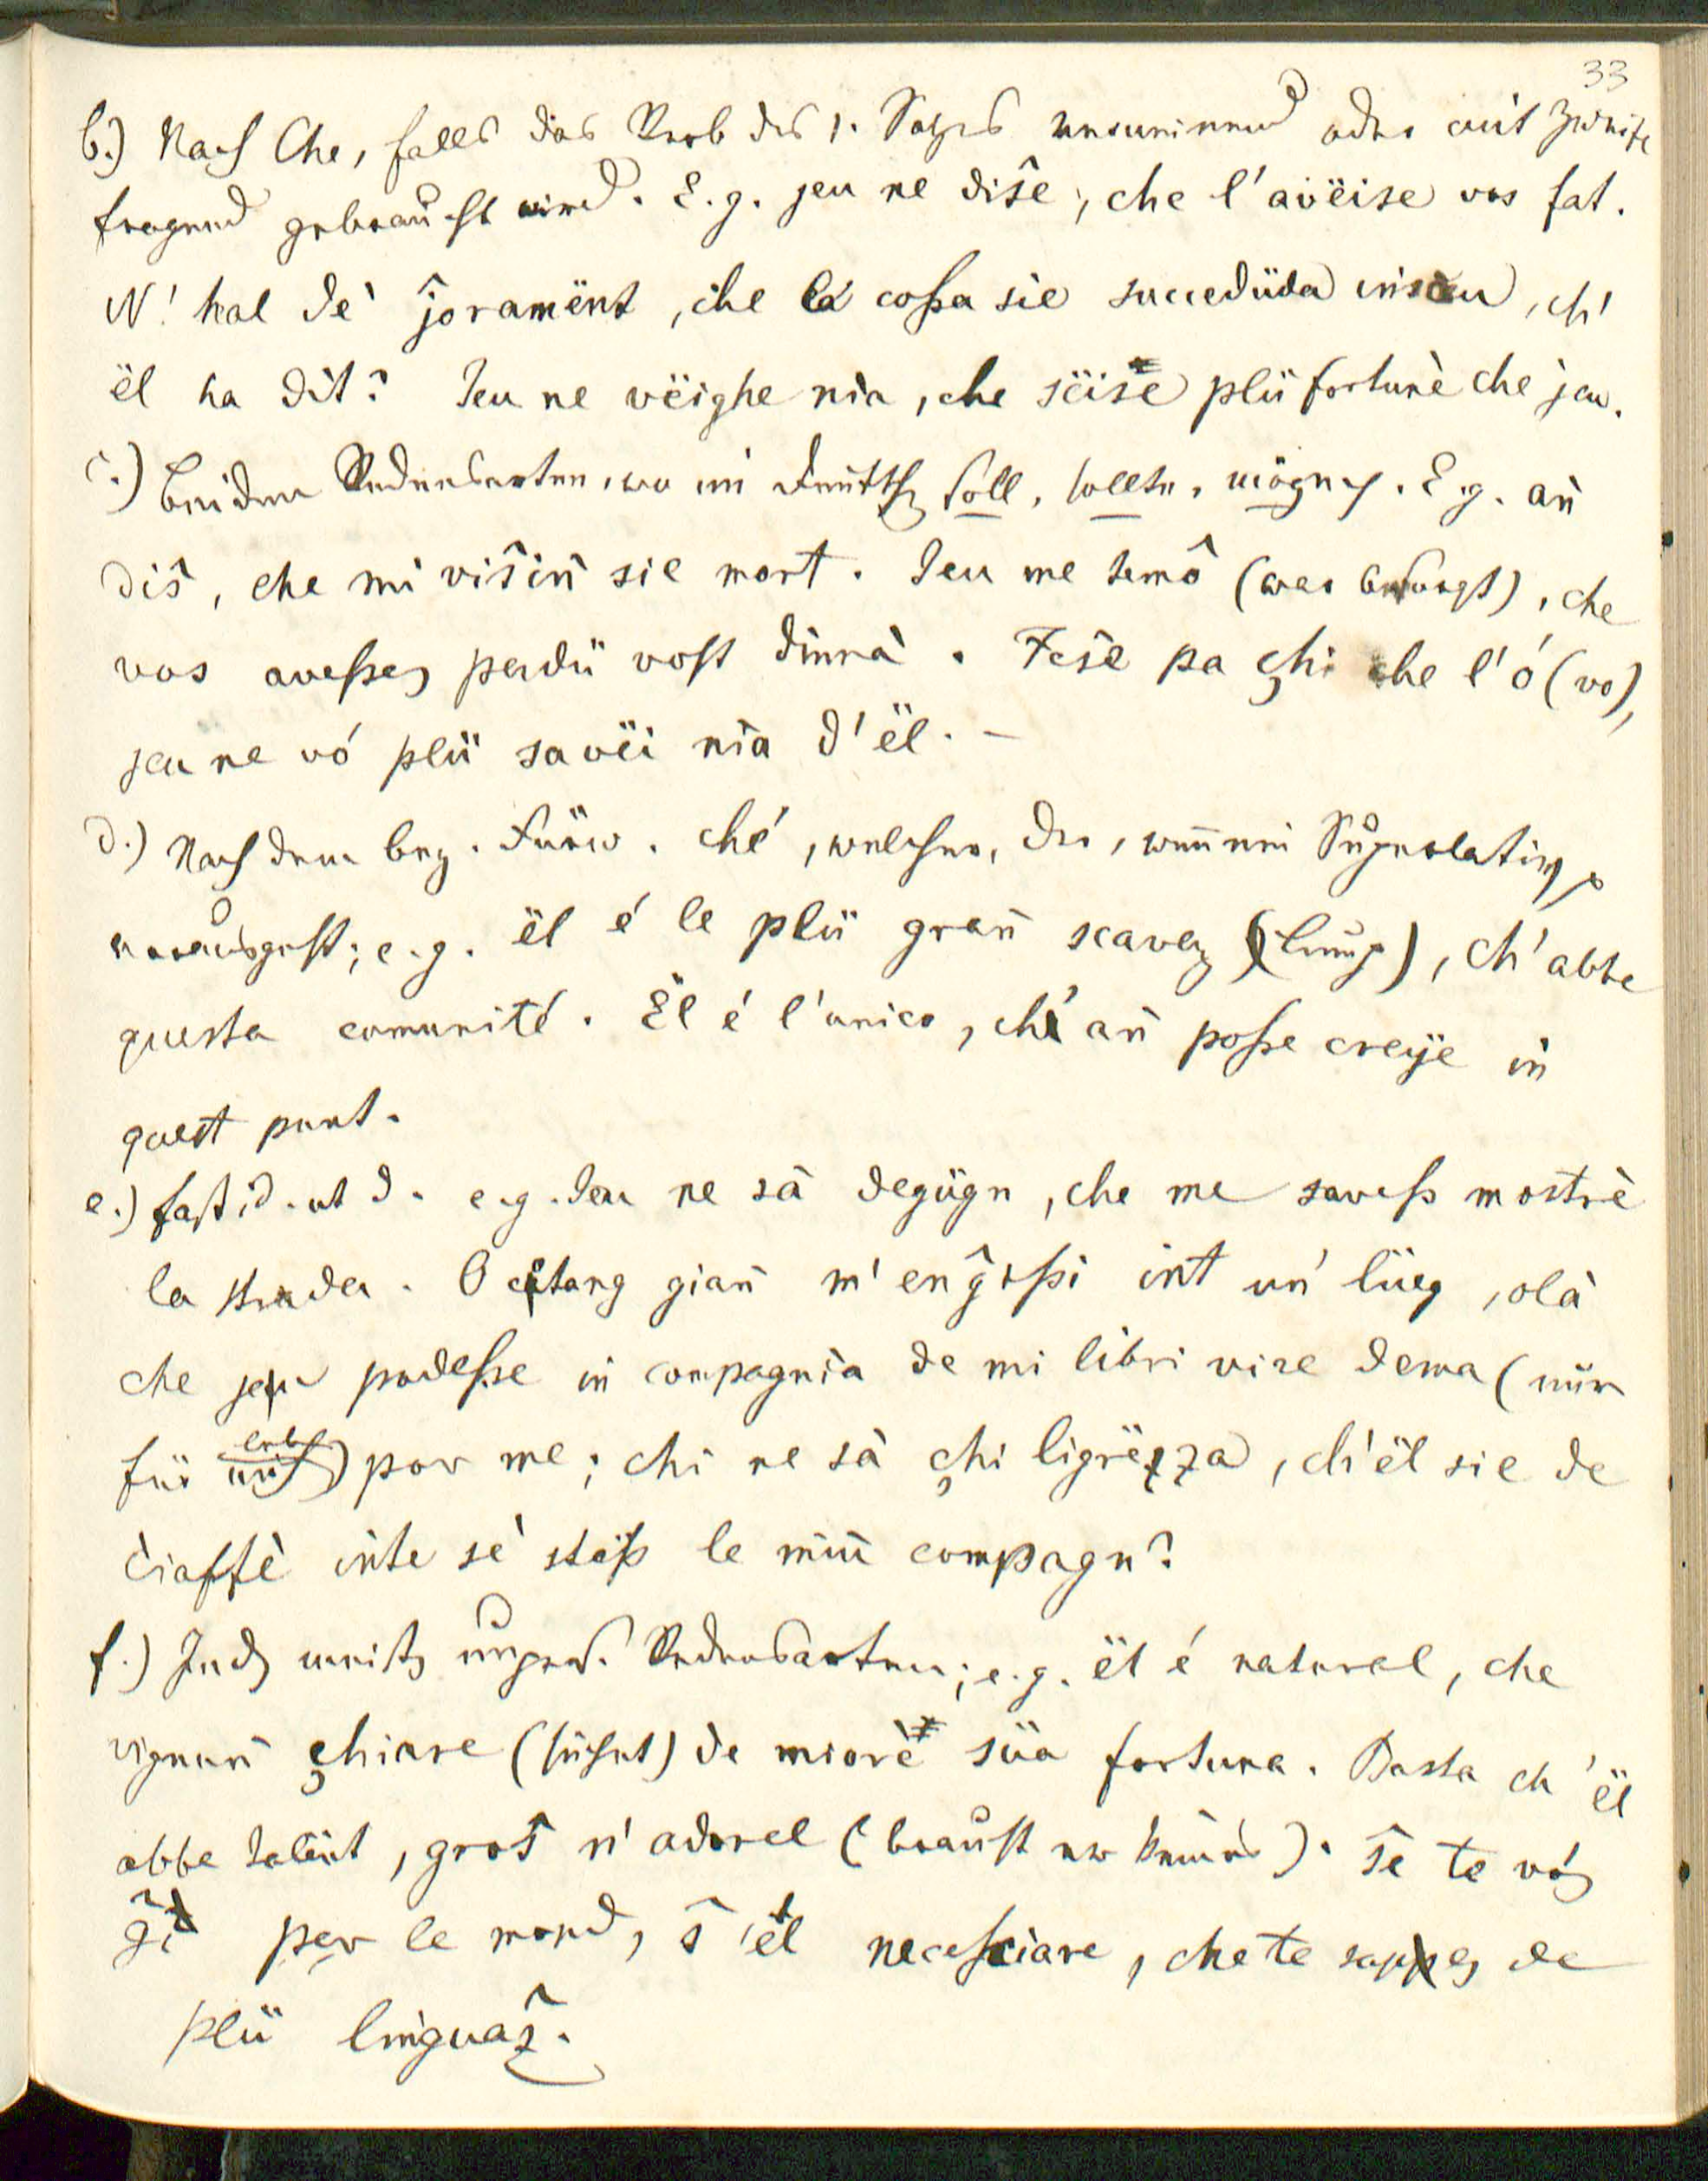 33
b.) Nach Che, falls das Verb des 1. Satzes verneinend oder mit Zweifel
fragend gebraucht wird. E.g. jeu ne diŝe, che l'avëise vos fat.
N' hal dè ĵoramënt, che la coßa sie succedüda insceu, ch'
ël ha dit? Jeu ne vëighe nia, che sëise plü fortunè che jeu.
c.) Bei den Redensarten, wo im Deutsch soll, sollte, möge. E.g. añ
diŝ, che mi viŝiñ sie mort. Jeu me temô (war besorgt), che
vos aveßes perdü vost dinnà. Feŝe pa çhi che l'ó (vo),
jeu ne vó plü savëi nia d'ël. –
d.) Nach dem bez. Fürw. ché, welcher, der, wenn ein Superlativ
vorausgeht; e.g. ël é le plü grañ scavez (Lump), ch'abbe
questa comunité. Ël é l'unico, ché añ poße creije in
quest punt.
e.) fast id. ut d. e.g. Jeu ne sà degügn, che me saveß mostrè
la strada. O cſtang giañ m'enĝoßi int un' lüeg, olà
che jeu podeße in compagnia de mi libri vire dema (nur
für mich) por me; chi ne sà çhi ligrëzza, ch'ël sie de
ciaffè inte sè stëß le miñ compagn?
f.) In den meisten unpers. Redensarten; e.g. ël é natural, che
vignuñ çhiare (sucht) de miorè süa fortuna. Basta ch'ël
abbe talënt, groŝ n'adorel (braucht er keines). Ŝe te vós
ĝì per le mond, ŝ'él neceßciare, che te sappes de
plü linguaŝ.